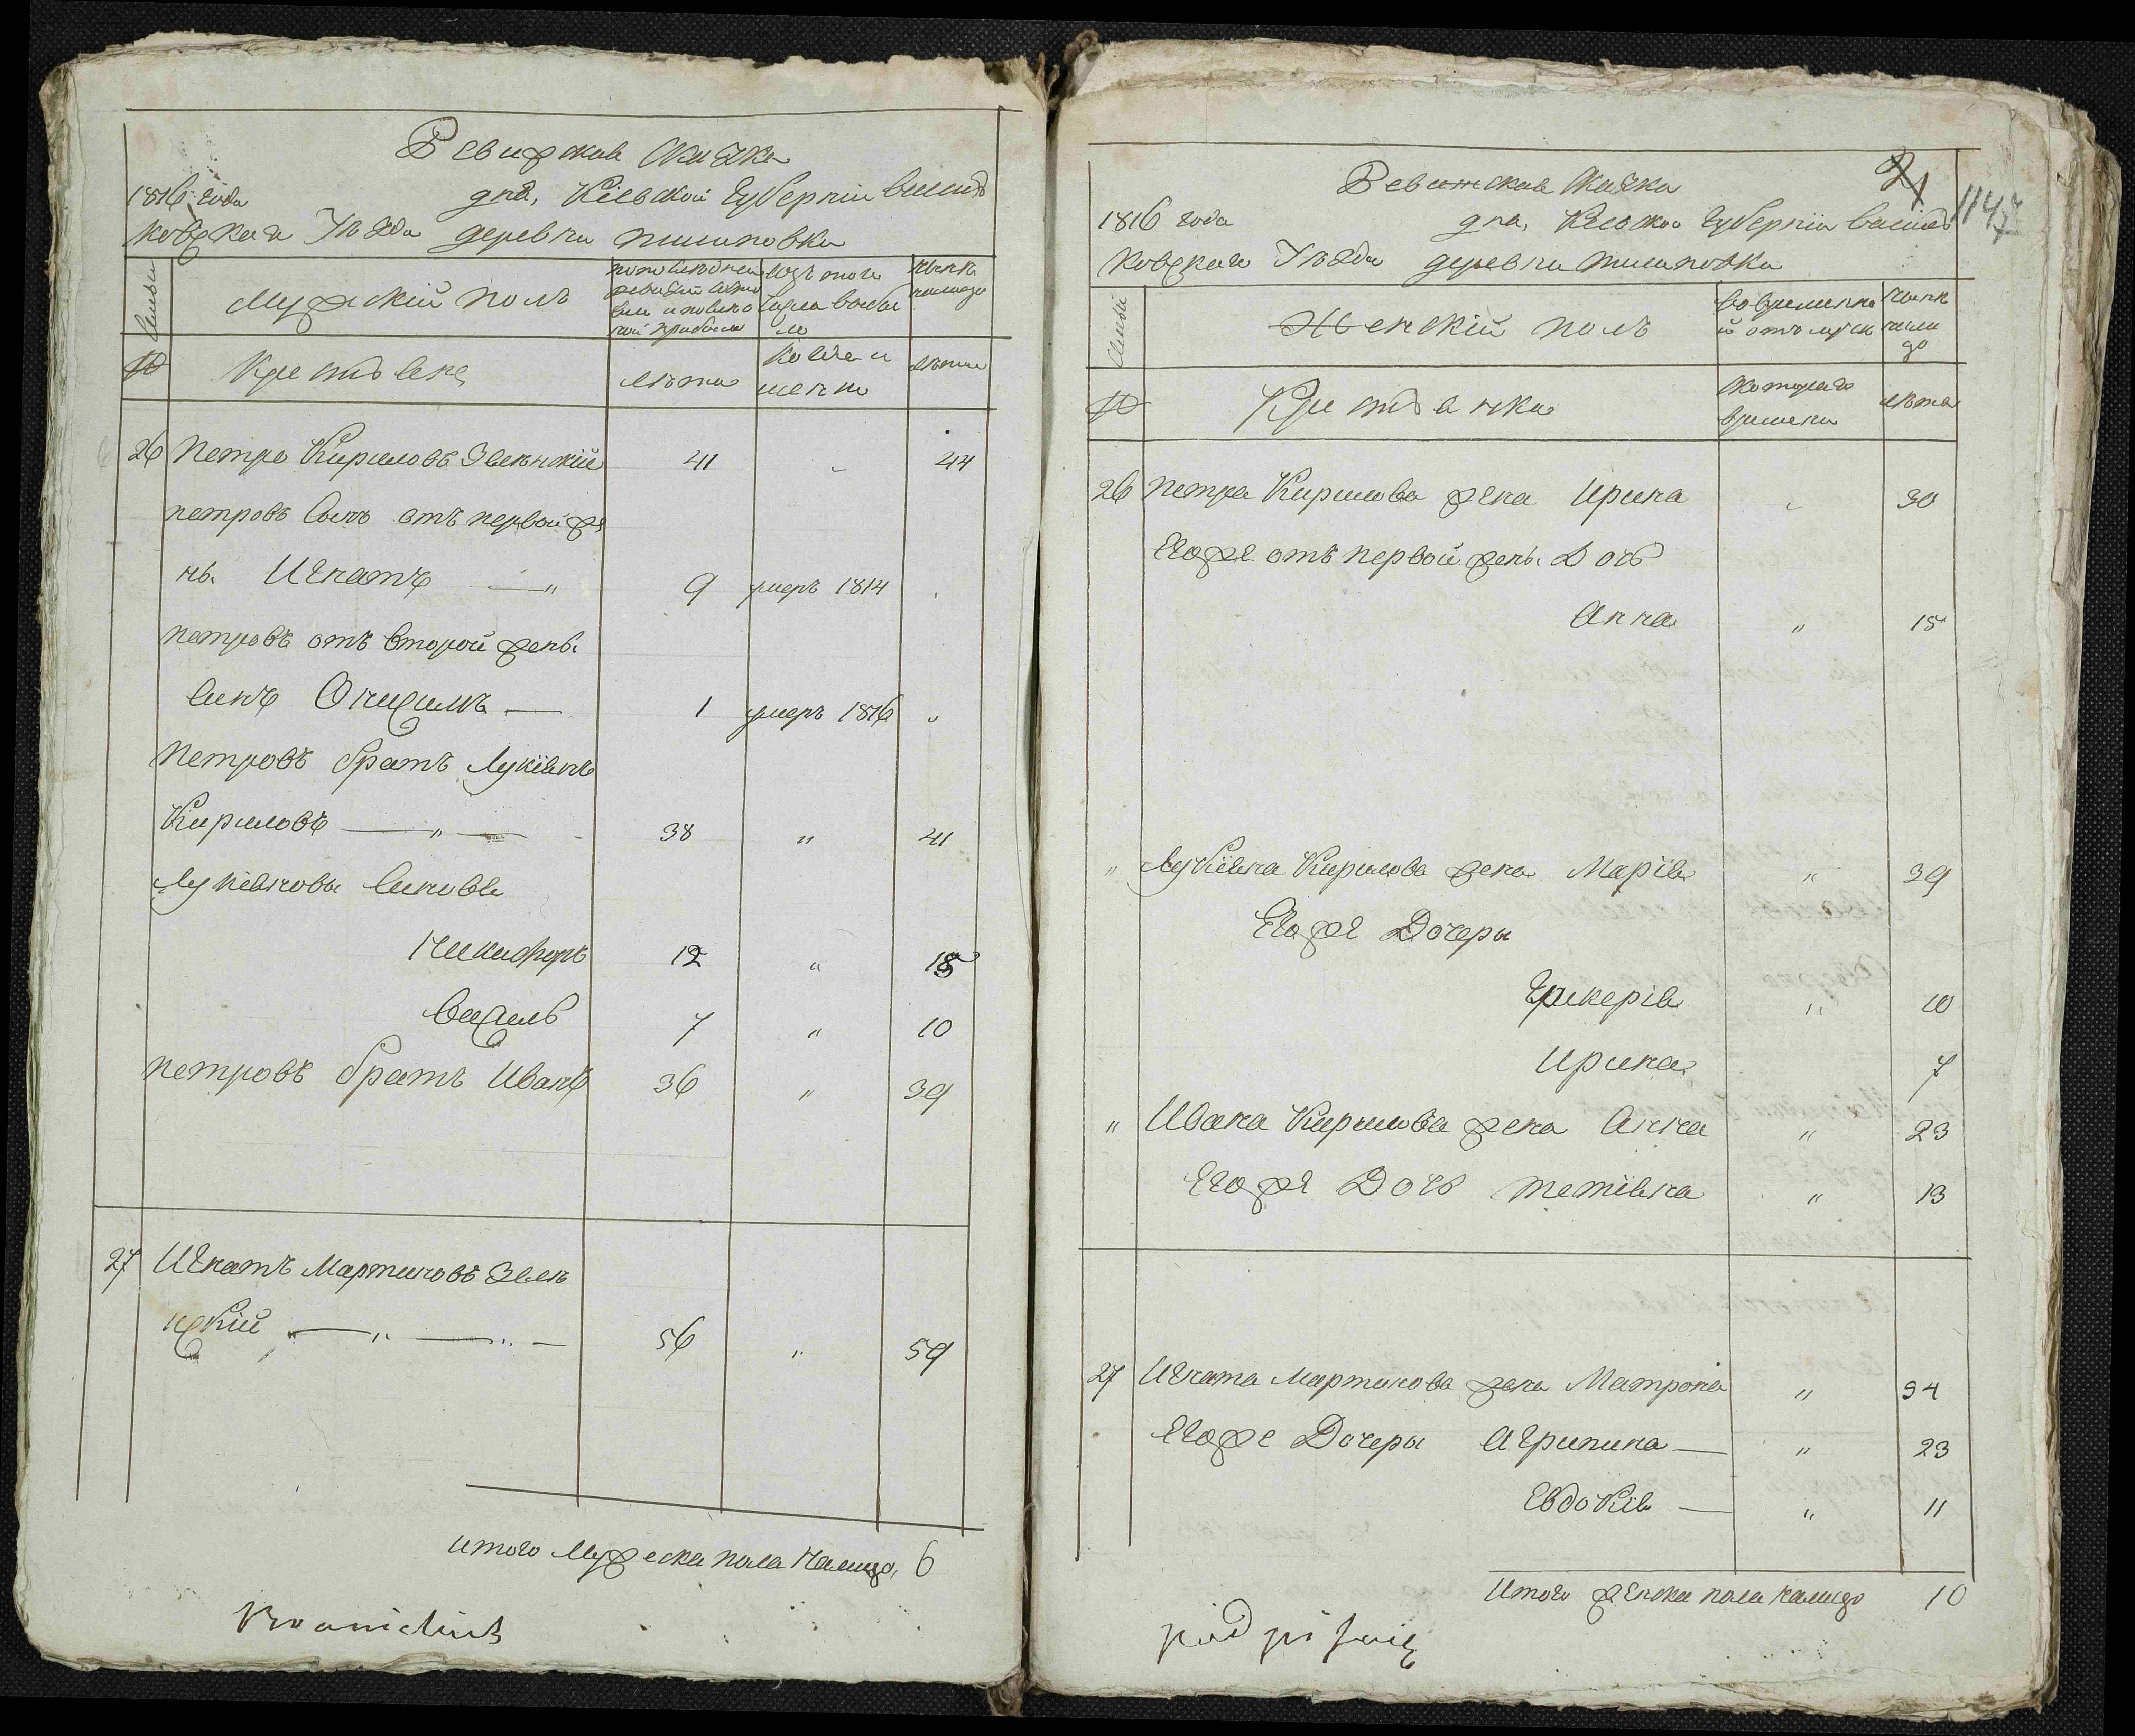 Ревижская Скаска
1816 года дня, Кіевской Губерніи Василь
ковскаго Уезда деревни пшиновки
Семьи
Мужскій полъ
по последней ревизіи состо
яло и после о
ной прибыло
изъ того
числа выбы
ло
ныне
налицо
Крестьяне
лета
когда и
менно
лета
26 Петро Кириловъ Зеленскій 41 44
петровъ сынъ отъ первой же
ны Игнатъ — " 9 умеръ 1814
петровъ отъ второй жены
синъ Онисимъ — 1 умеръ 1816 "
Петровъ братъ Лукіянъ
Кириловъ — " — 38 " 41
Лукіяновы синовя
Никифоръ 12 " 15
Василь 7 " 10
петровъ братъ Иванъ 36 " 39
27 Игнатъ Мартиновъ Зелен
скій — " — " — 56 " 59
итого Мужеска пола Налицо, 6
Ревижская Скаска
1147
1816 года дня, Кіевской Губерніи Василь
ковскаго Уезда деревни пшиновки
Семьи
Женскій полъ
во временно
й отлучк
ныне
нали
цо
Крестьянки
скотораго
времени
лета
26 петра Кирилова жена Ирина " 30
Егоже отъ первой жены Дочь
Анна " 15
" Лукіяна Кирилова жена Марія " 39
Егоже Дочеры
Гликерія " 10
Ирина 7
" Ивана Кирилова жена Анна " 23
Егоже Дочь тетіяна " 13
27 Игната Мартинова жена Матрона " 54
Егоже Дочеры Агрипина — " 23
Евдокія — " 11
Итого женска пола налицо 10